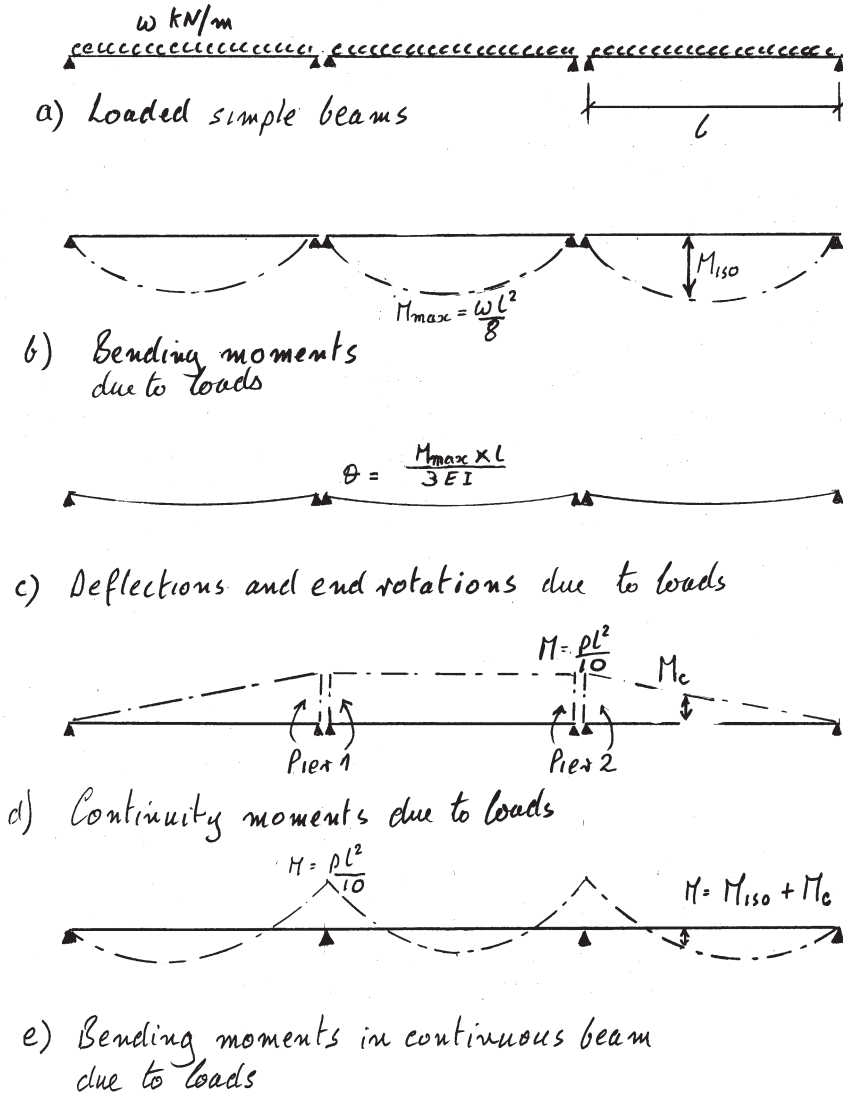 ω kN/m
a) Loaded simple beams
l
M iso
M max = ωl²/8
b) Bending moments
due to loads
θ = M max × l / 3EI
c) Deflections and end rotations due to loads
M = pl²/10
Mc
Pier 1
Pier 2
d) Continuity moments due to loads
M = pl²/10
M = M iso + Mc
e) Bending moments in continuous beam
due to loads